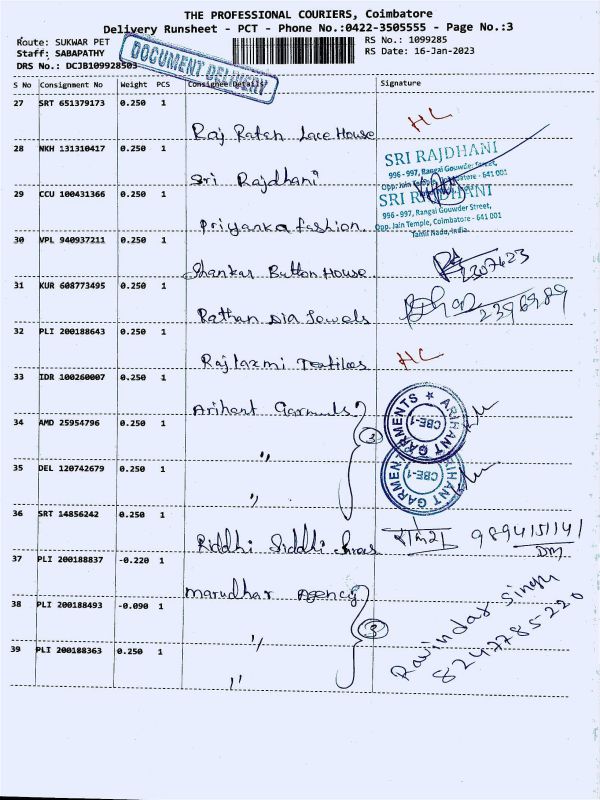 THE PROFESSIONAL COURIERS, Coimbatore
Delivery Runsheet - PCT - Phone No.:0422-3505555 - Page No.:3
Route: SUKWAR PET
RS No.: 1099285
Staff: SABAPATHY
RS Date: 16-Jan-2023
DRS No.: DCJB109928503
DOCUMENT DELIVERY
S No Consignment No Weight PCS Consignee Details Signature
27 SRT 651379173 0.250 1
Raj Ratan Lace House HL
28 NKH 131310417 0.250 1
Sri Rajdhani
SRI RAJDHANI
996 - 997, Rangai Gouwder Street,
Opp. Jain Temple, Coimbatore - 641 001
29 CCU 100431366 0.250 1
Priyanka fashion
SRI RAJDHANI
996 - 997, Rangai Gouwder Street,
Opp. Jain Temple, Coimbatore - 641 001
Tamil Nadu, India.
30 VPL 940937211 0.250 1
Shankar Button House
2307623
31 KUR 608773495 0.250 1
Rathan Dia Jewels
2396989
32 PLI 200188643 0.250 1
Rajlaxmi Textiles HL
33 IDR 100260007 0.250 1
Arihant Garments
ARIHANT GARMENTS
CBE-1
34 AMD 25954796 0.250 1
" 3
35 DEL 120742679 0.250 1
"
ARIHANT GARMENTS
CBE-1
36 SRT 14856242 0.250 1
Riddhi Siddhi
9894151141
DM
37 PLI 200188837 -0.220 1
Marudhar Agency
38 PLI 200188493 -0.090 1
" 3
39 PLI 200188363 0.250 1
"
Ravindar Singh
8247785220